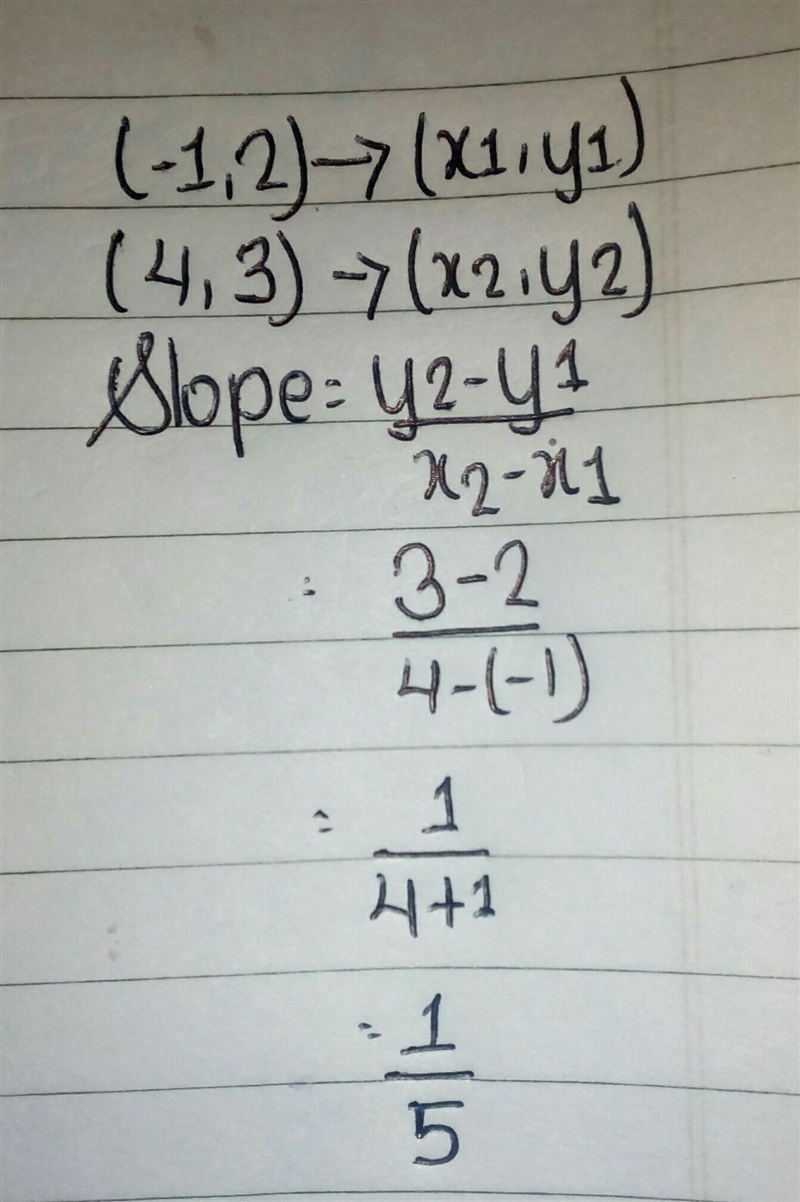 (-1,2)→(x1,y1)
(4,3)→(x2,y2)
Slope= y2-y1
x2-x1
= 3-2
4-(-1)
= 1
4+1
= 1
5